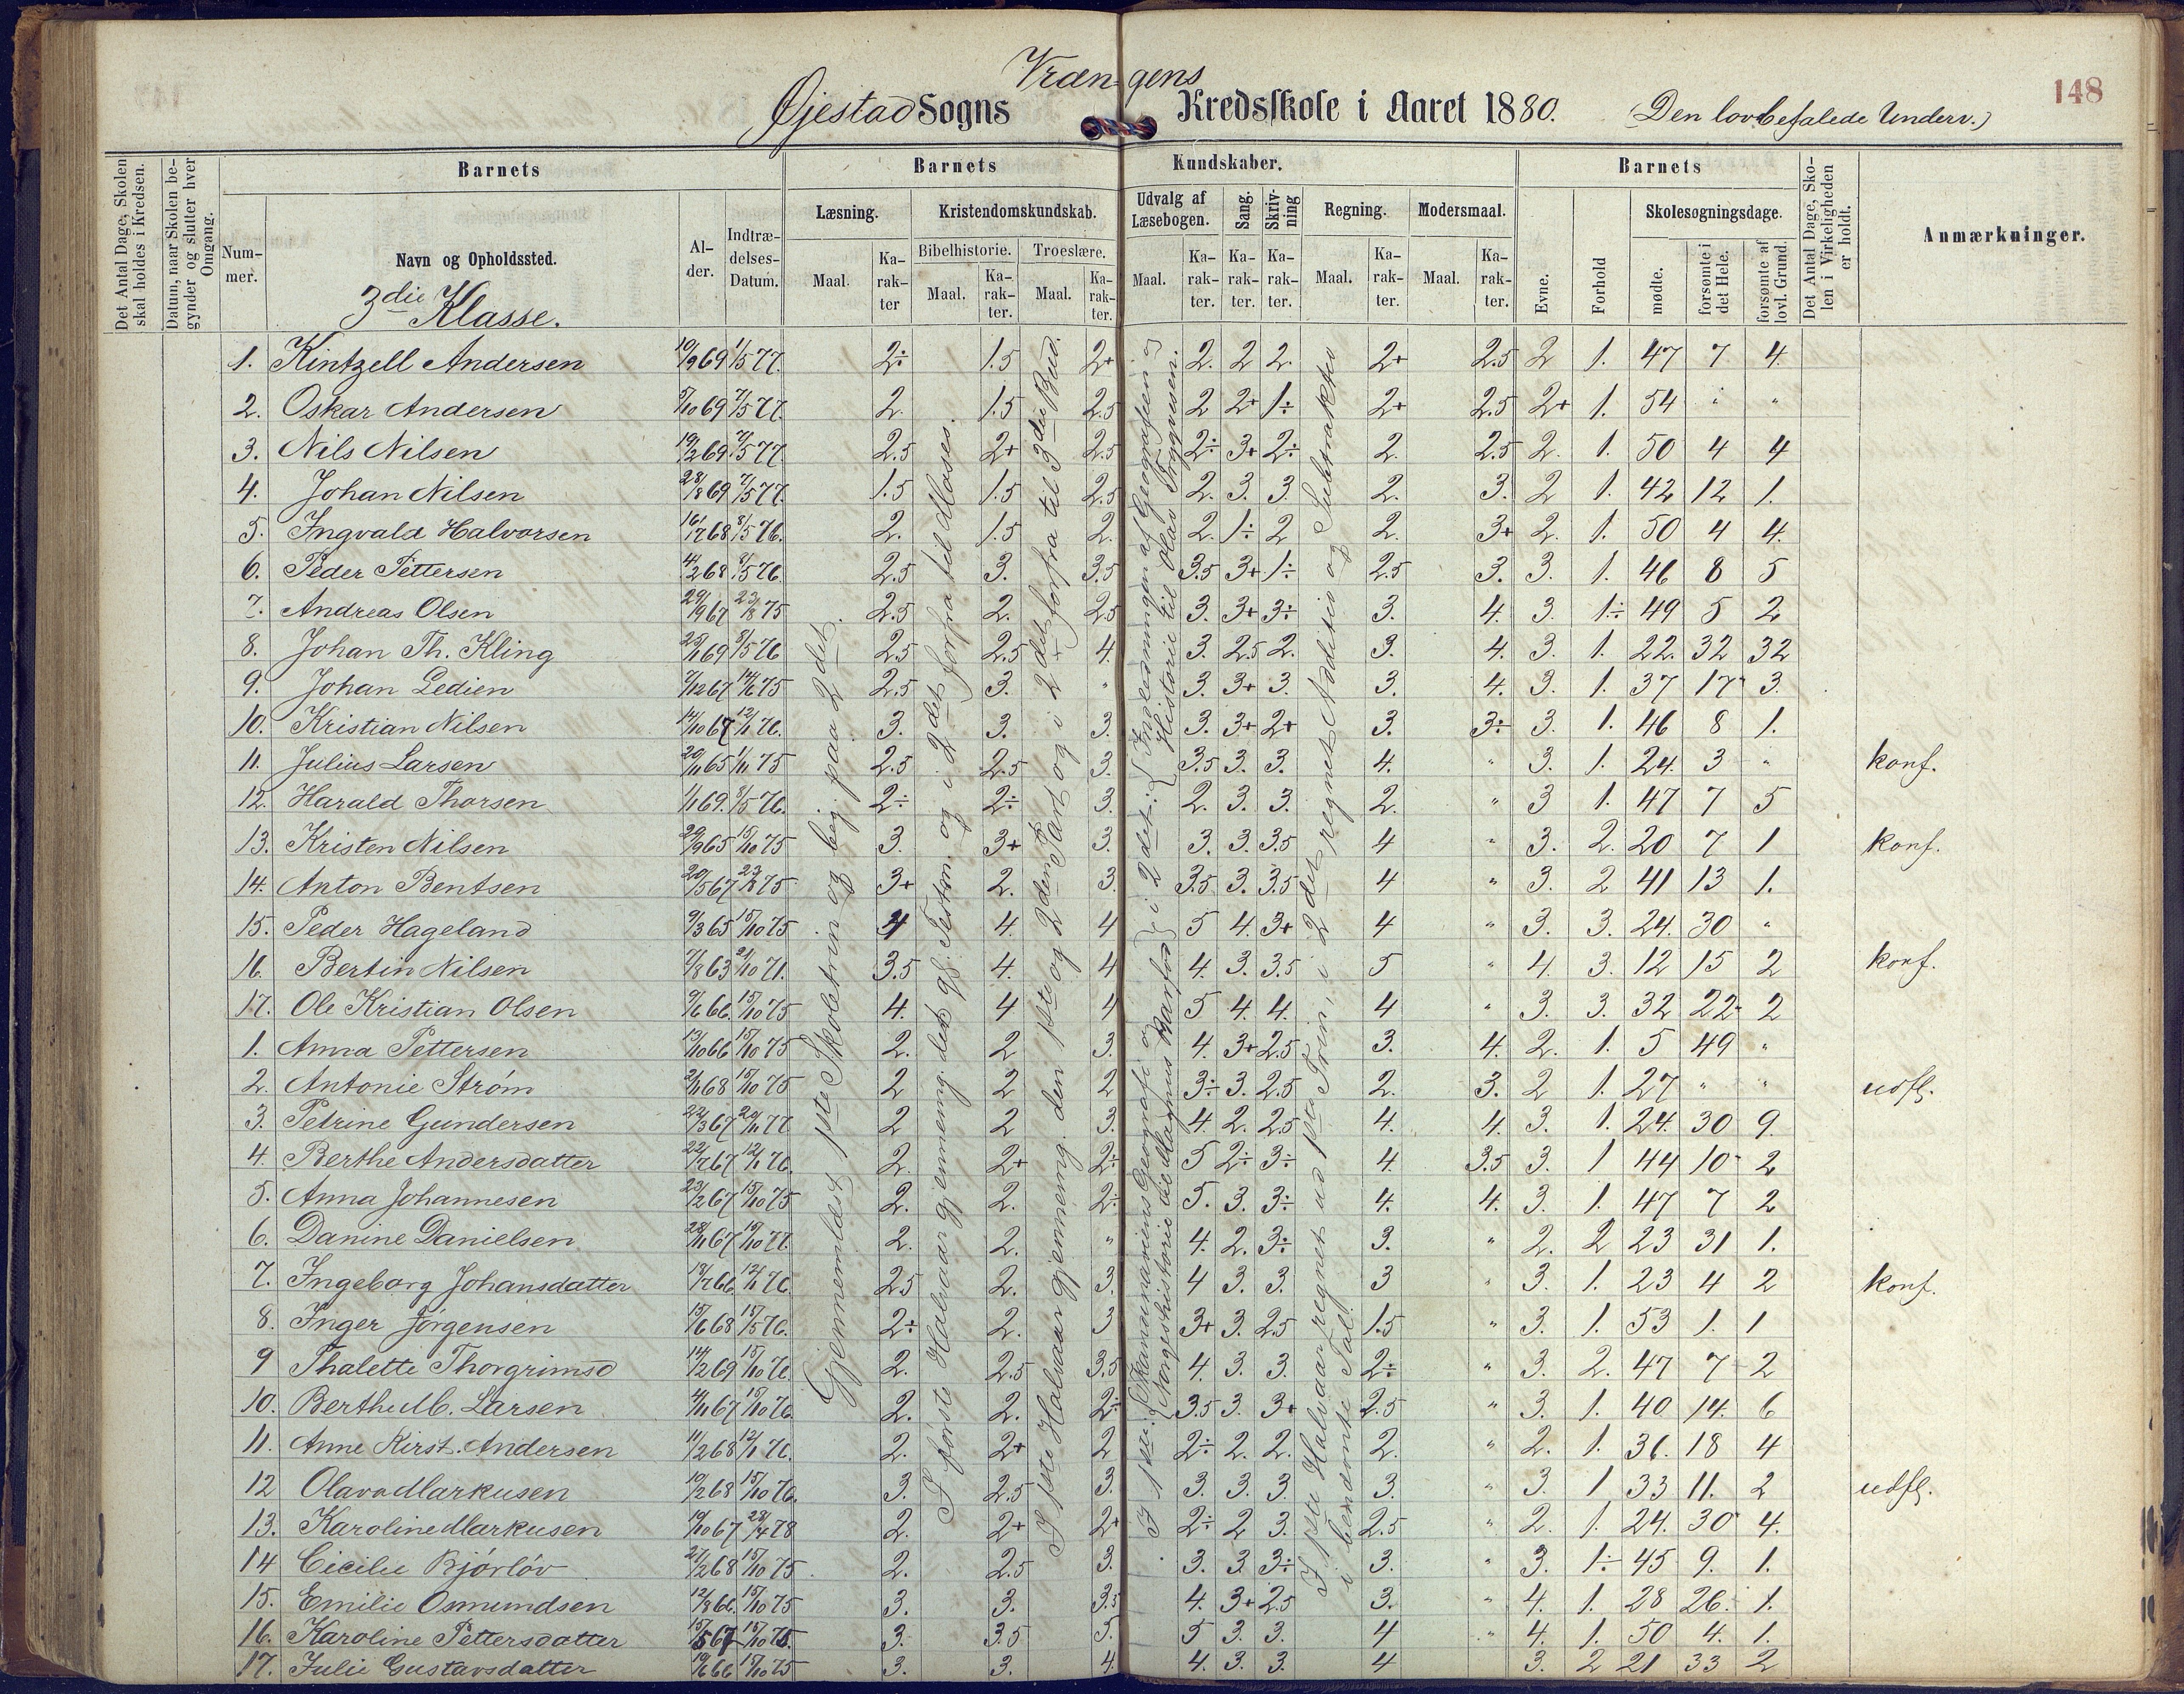 148
Vræn-gens
Øjestad Sogns Kredsskole i Aaret 1880. (Den lovbefalede Underv.)
Det Antal Dage, Skolen skal holdes i Kredsen.
Datum, naar Skolen begynder og slutter hver Omgang.
Barnets
Nummer.
Navn og Opholdssted.
3die Klasse.
Alder.
Indtrædelses-Datum.
Barnets Kundskaber.
Læsning. Maal. Karakter
Kristendomskundskab.
Bibelhistorie. Maal. Karakter.
Troeslære. Maal. Karakter.
Udvalg af Læsebogen. Maal. Karakter.
Sang. Karakter.
Skrivning Karakter.
Regning. Maal. Karakter.
Modersmaal. Maal. Karakter.
Barnets
Evne.
Forhold
Skolesøgningsdage.
mødte.
forsømte i det Hele.
forsømte af lovl. Grund.
Det Antal Dage, Skolen i Virkeligheden er holdt.
Anmærkninger.
1. Kintzell Andersen 19/9 69 1/5 77. 2÷ 1.5 2+ 2. 2 2. 2+ 2.5 2 1. 47 7 4.
2. Oskar Andersen 5/10 69 7/5 77. 2. 1.5 2.5 2 2+ 1÷ 2+ 2.5 2+ 1. 54 " "
3. Nils Nilsen 19/2 69 7/5 77 2.5 2+ 2.5 2÷ 3+ 2÷ 2. 2.5 2. 1. 50 4 4
4. Johan Nilsen 28/8 69 7/5 77. 1.5 1.5 2.5 2. 3. 3. 2. 3. 2 1. 42 12 1.
5. Ingvald Halvorsen 16/7 68 8/5 76. 2. 1.5 2. 2. 1÷ 2 2. 3+ 2. 1. 50 4 4.
6. Peder Pettersen 4/2 68 8/5 76. 2.5 3. 3.5 3.5 3+ 1÷ 2.5 3. 3. 1. 46 8 5
7. Andreas Olsen 29/9 67 23/8 75 2.5 2. 2.5 3. 3+ 3÷ 3. 4. 3. 1÷ 49 5 2
8. Johan Th. Kling 25/1 69 8/5 76 2.5 2.5 4. 3. 2.5 2. 3. 4. 3. 1. 22. 32 32
9. Johan Ledien 7/12 67 14/6 75 2.5 3. " 3. 3+ 3. 3. 4. 3. 1. 37 17 3.
10. Kristian Nilsen 14/10 67 12/1 76. 3. 3. 3. 3. 3+ 2+ 3. 3÷ 3. 1. 46 8 1.
11. Julius Larsen 20/11 65 1/11 75 2.5 2.5 3. 3.5 3. 3. 4. " 3. 1. 24. 3 " konf.
12. Harald Thorsen 1/1 69. 8/5 76. 2÷ 2÷ 3. 2. 3. 3. 2. " 3 1. 47 7 5
13. Kristen Nilsen 29/9 65 15/10 75 3. 3+ 3. 3. 3. 3.5 4 " 3. 2. 20 7 1 konf.
14. Anton Bentsen 20/5 67 23/8 75 3+ 2. 3. 3.5 3. 3.5 4 " 3. 2 41 13 1.
15. Peder Hageland 9/3 65 15/10 75 4 4. 4 5 4. 3+ 4 " 3. 3. 24. 30 "
16. Bertin Nilsen 7/8 63 21/10 71. 3.5 4. 4 4. 3. 3.5 5 " 4. 3. 12 15 2 konf.
17. Ole Kristian Olsen 9/6 66. 15/10 75 4. 4 4 5 4. 4. 4 " 3. 3. 32 22 2
1. Anna Pettersen 13/10 66 15/10 75 2. 2 3. 4. 3+ 2.5 3. 4. 2. 1. 5 49 "
2. Antonie Strøm 2/11 68 15/10 75 2 2 2 3÷ 3. 2.5 2. 3. 2 1. 27 " " udfl.
3. Petrine Gundersen 22/3 67 20/11 77 2 2 3. 4. 2. 2.5 4. 4. 3. 1. 24. 30 9.
4. Berthe Andersdatter 22/7 67 12/1 76. 2. 2+ 2÷ 5 2÷ 3÷ 4. 3.5 3. 1 44 10 2
5. Anna Johannesen 23/2 67 15/10 75 2. 2. 2÷ 5. 3. 3÷ 4. 4. 3. 1. 47 7 2
6. Danine Danielsen 28/11 67 19/10 77. 2. 2. " 4. 2. 3÷ 3. " 2. 2 23 31 1.
7. Ingeborg Johansdatter 13/7 66. 12/1 76 2.5 2. 3. 4 3. 3. 3 " 3. 1. 23 4 2 konf.
8. Inger Jørgensen 15/6 68 15/5 76. 2÷ 2. 3 3+ 3. 2.5 1.5 " 3. 1. 53 1. 1
9 Thalette Thorgrimsd 14/2 69 15/10 76. 2. 2.5 3.5 4. 3. 3. 2÷ " 3. 2. 47 7 2
10. Berthe M. Larsen 4/11 67 15/10 76 2. 2. 2÷ 3.5 3. 3+ 2.5 " 3. 1. 40 14. 6
11. Anne Kirst. Andersen 11/2 68 12/1 76. 2. 2+ 2 2÷ 2. 2. 2. " 2. 1. 36. 18 4
12 Olava Markusen 19/2 68 15/10 76. 3. 2.5 3. 3. 3. 3. 3. " 3. 1 33 11. 2 udfl.
13. Karoline Markusen 19/10 67 28/4 78 2. 2+ 2+ 2÷ 2 3. 2.5 " 2. 1. 24. 30 4.
14 Cicilie Bjørløv 27/2 68 15/10 75 2. 2.5 3. 3. 3. 3÷ 3. " 3. 1÷ 45 9. 1.
15. Emilie Osmundsen 12/8 66. 15/10 75 3. 3. 3.5 4. 3+ 2.5 3. " 4. 1. 28 26. 1.
16. Karoline Pettersdatter 15/5 67 15/10 75. 3. 3.5 5. 5 3. 3. 4 " 4. 1. 50 4. 1.
17. Julie Gustavsdatter 19/6 66 15/10 75 3. 3. 4. 4. 3. 3. 4 3. 2 21 33 2
Gjennemlæst 1ste Skoletrin og beg. paa 2det.
I første Halvaar gjennemg. det gl. Testm. og i 2det forfra til Moses.
I 1ste Halvaar gjennemg. den 1ste og 2den Part og i 2det forfra til 3die Bud.
I 1ste: {Skandinaviens Geografi og Norgeshistorie til Magnus Barfod} i 2det: {Indledningen af Geografien og Historie til Olav Trygvesen.
I 1ste Halvaar regnet ud 1ste Trin, i 2det regnet Additio og Subtraktio i benævnte Tal.